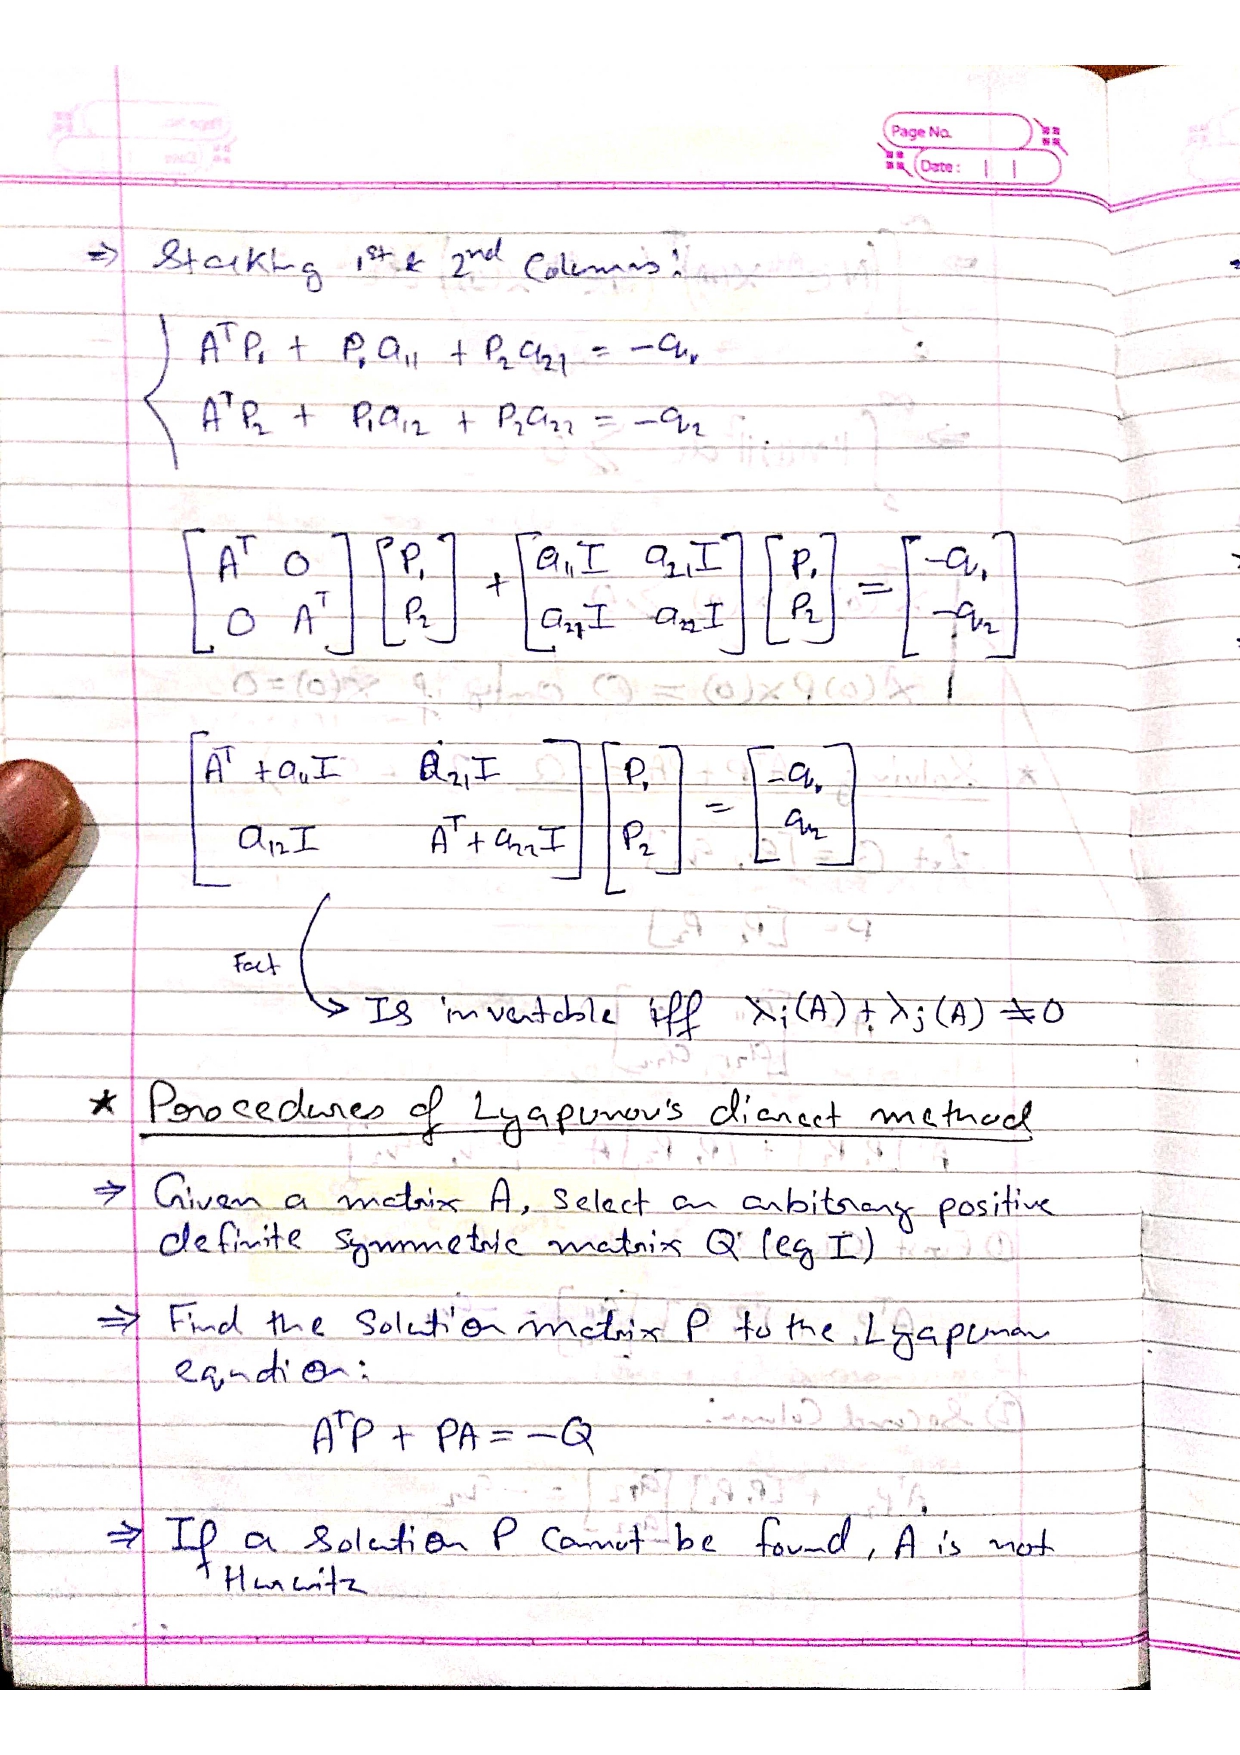 Page No.
Date:
⇒ Stacking 1st & 2nd Columns:
AᵀP₁ + P₁a₁₁ + P₂a₂₁ = -q₁,
AᵀP₂ + P₁a₁₂ + P₂a₂₂ = -q₂
[Aᵀ 0; 0 Aᵀ] [P₁; P₂] + [a₁₁I a₂₁I; a₂₁I a₂₂I] [P₁; P₂] = [-q₁; -q₂]
[Aᵀ + a₁₁I a₂₁I; a₁₂I Aᵀ + a₂₂I] [P₁; P₂] = [-q₁; q₂]
Fact
→ Is invertable iff λᵢ(A) + λⱼ(A) ≠ 0
* Procedures of Lyapunov's direct method
⇒ Given a matrix A, select an arbitrary positive
definite symmetric matrix Q (eg I)
⇒ Find the Solution matrix P to the Lyapunov
equation:
AᵀP + PA = -Q
⇒ If a solution P cannot be found, A is not
Hurwitz